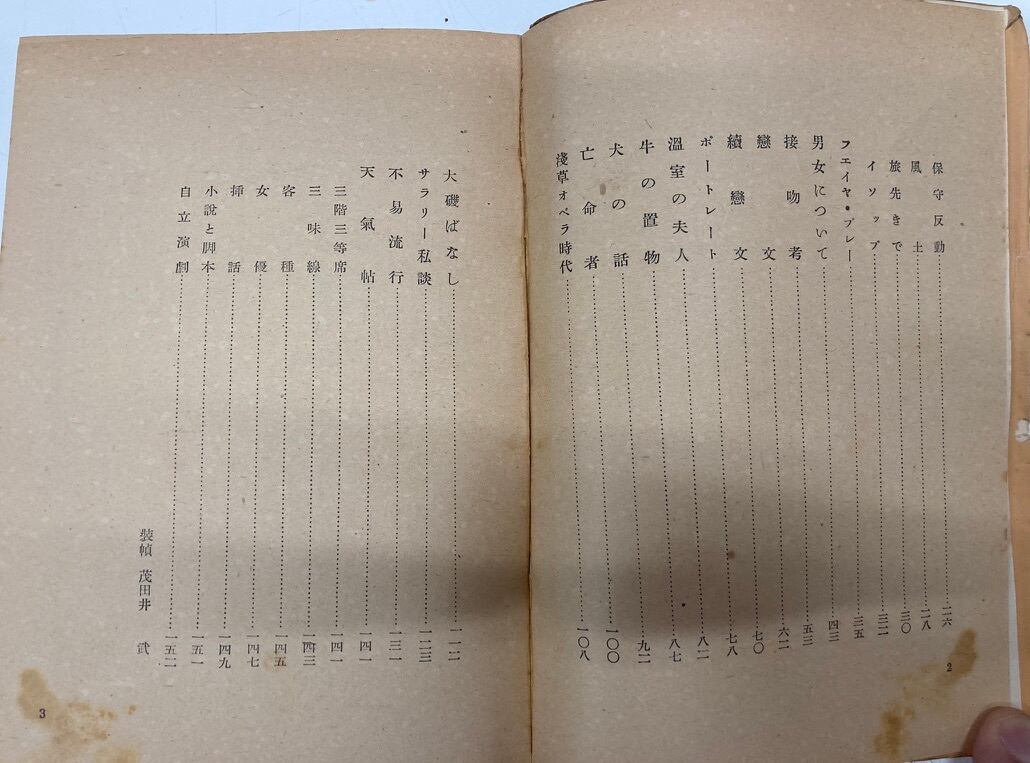 保守反動 二六
風土 二八
旅先きで 三〇
イソップ 三二
フエイヤ・プレー 三五
男女について 四三
接吻考 五三
戀文 六二
續戀文 七〇
ポートレート 七八
溫室の夫人 八二
牛の置物 八七
犬の話 九二
亡命者 一〇〇
淺草オペラ時代 一〇八
2
大磯ばなし 一一二
サラリー私談 一二三
不易流行 一三一
天氣帖 一四一
三階三等席 一四一
三味線 一四三
客種 一四五
女優 一四七
揷話 一四九
小說と脚本 一五一
自立演劇 一五二
裝幀 茂田井 武
3